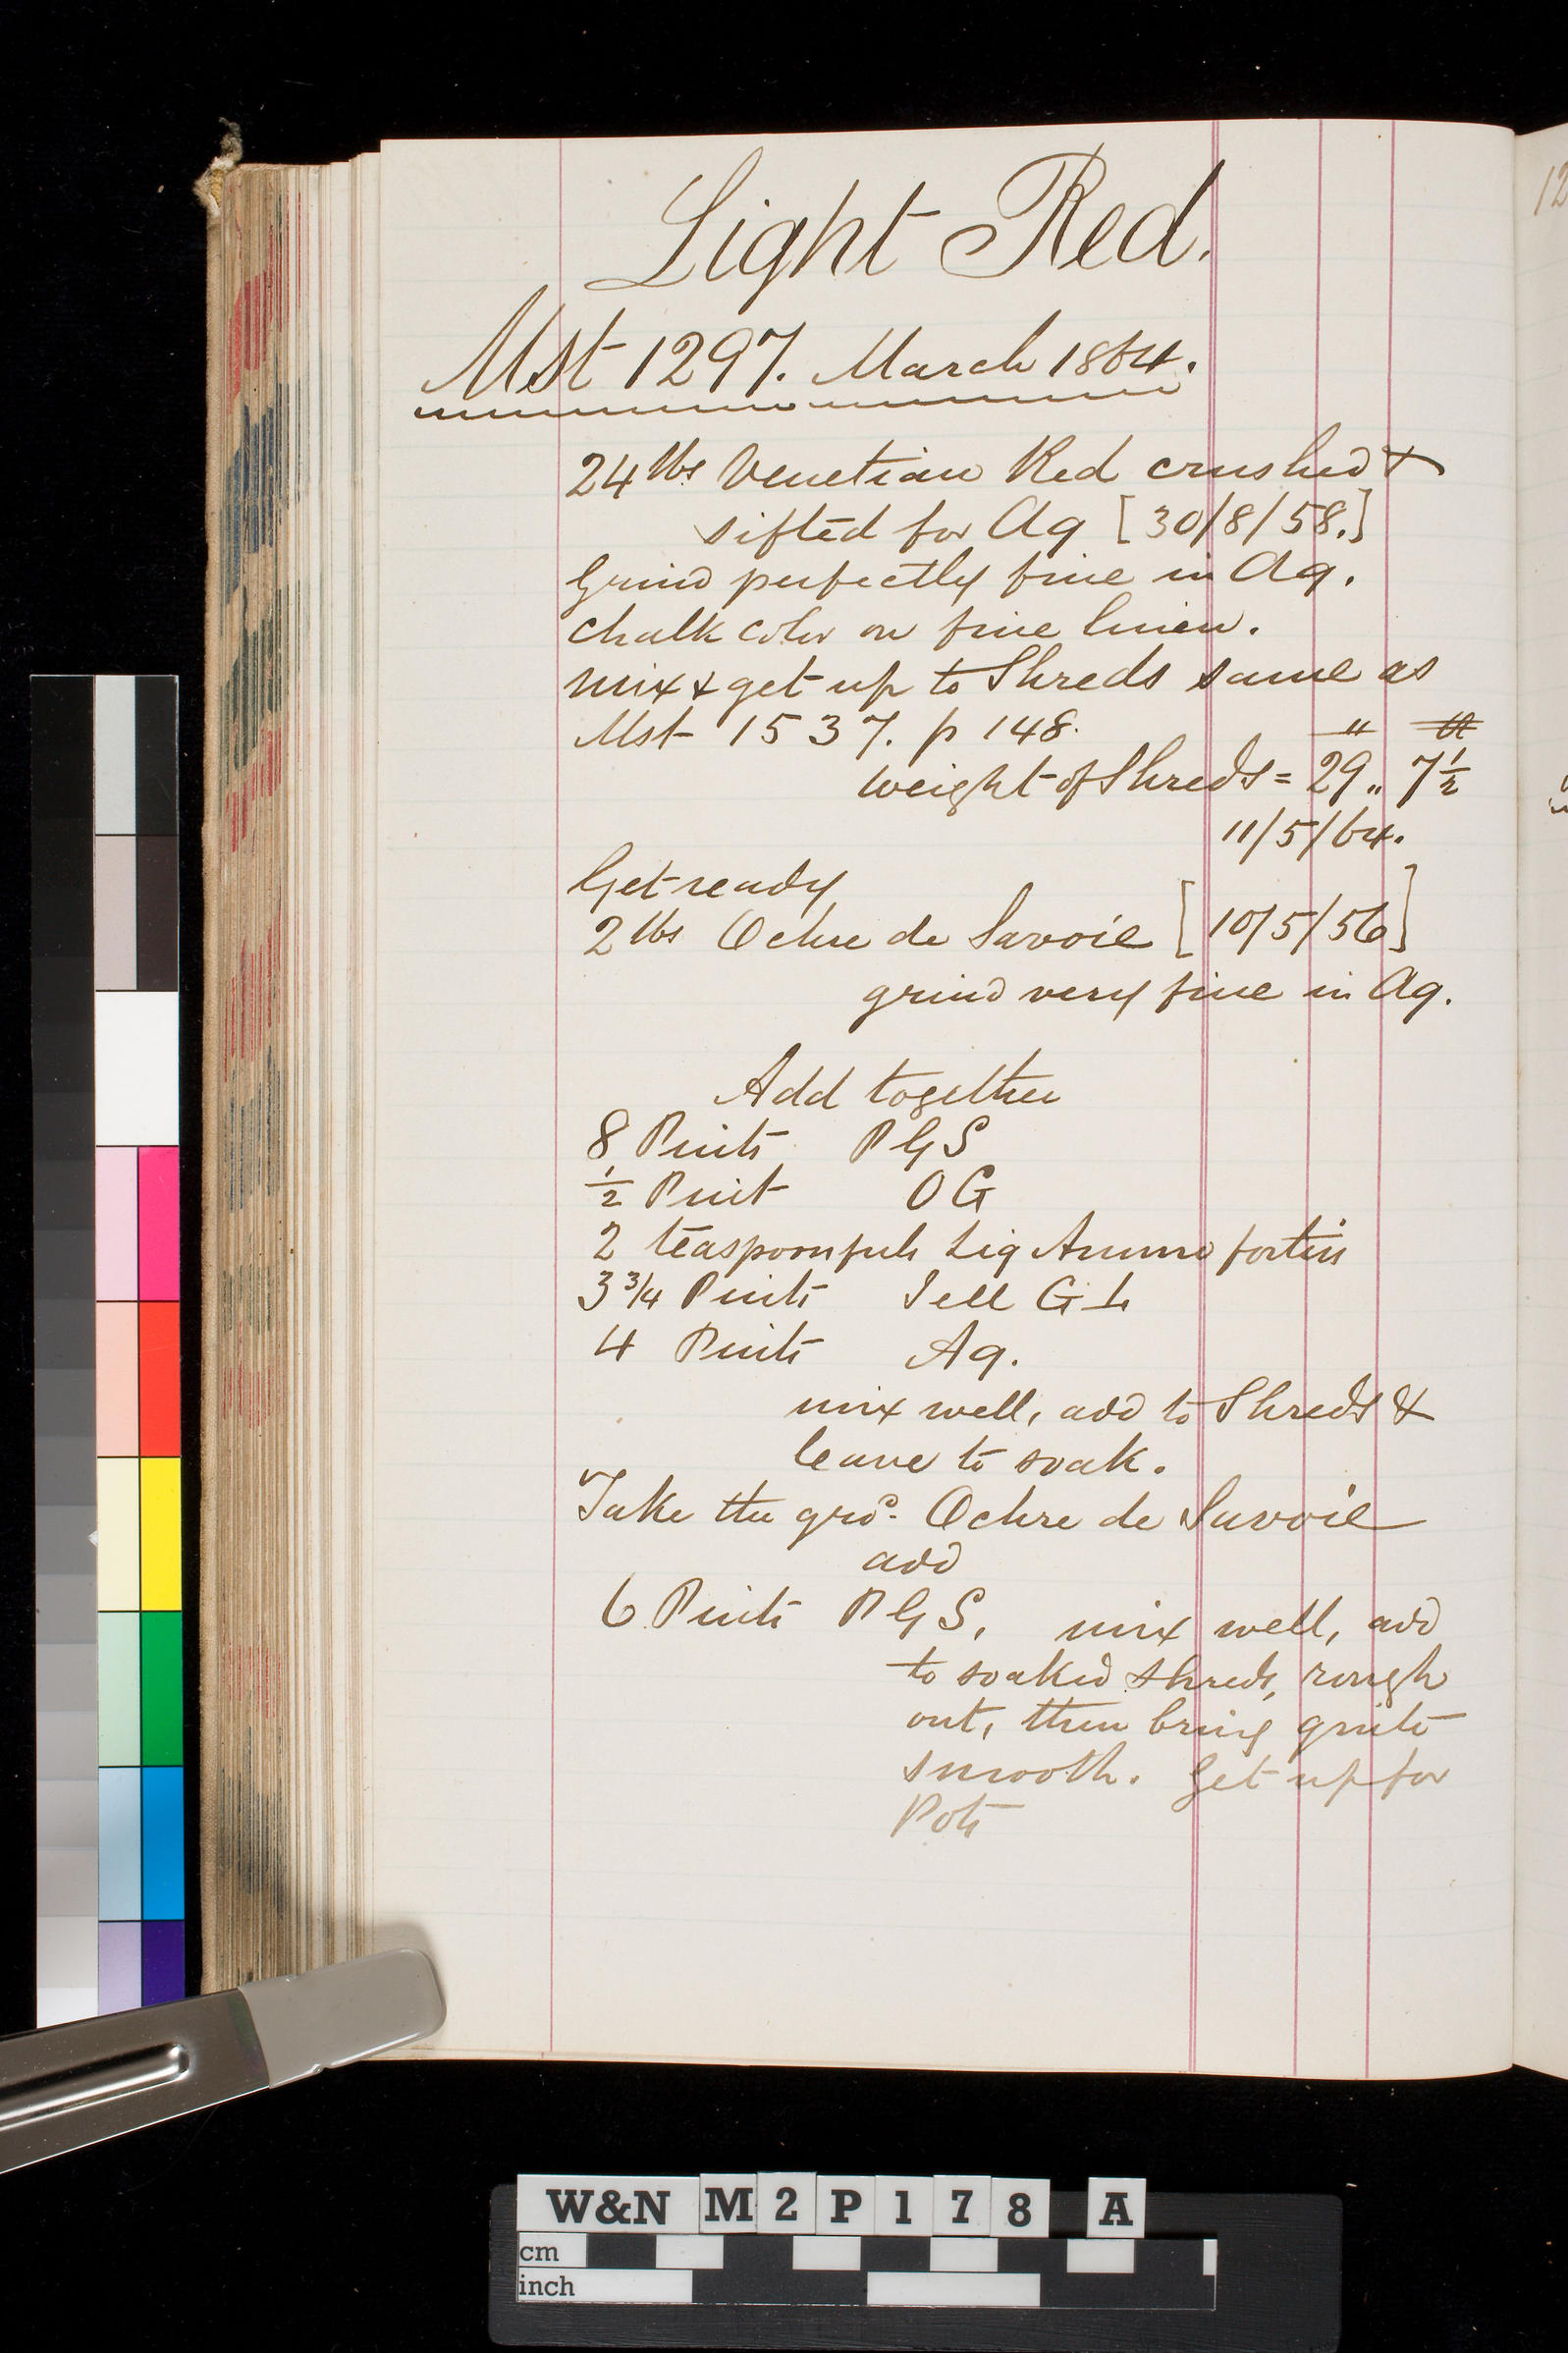 Light Red.
Mst 1297. March 1864.
24 lbs Venetian Red crushed &
sifted for Aq [30/8/58.]
Grind perfectly fine in Aq.
chalk color on fine linen.
mix & get up to Shreds same as
Mst 1537. p 148.
weight of Shreds = 29 ,, 7½
11/5/64.
Get ready
2 lbs Ochre de Savoie [10/5/56]
grind very fine in Aq.
Add together
8 Pints P G S
½ Pint O G
2 teaspoonfuls Liq Ammo fortis
3 3/4 Pints Jell G L
4 Pints Aq.
mix well, add to Shreds &
leave to soak.
Take the gro.d Ochre de Savoie
add
6 Pints P G S, mix well, add
to soaked shreds, rough
out, then bring quite
smooth. Get up for
Pots
12
W&N M2P178 A
cm
inch